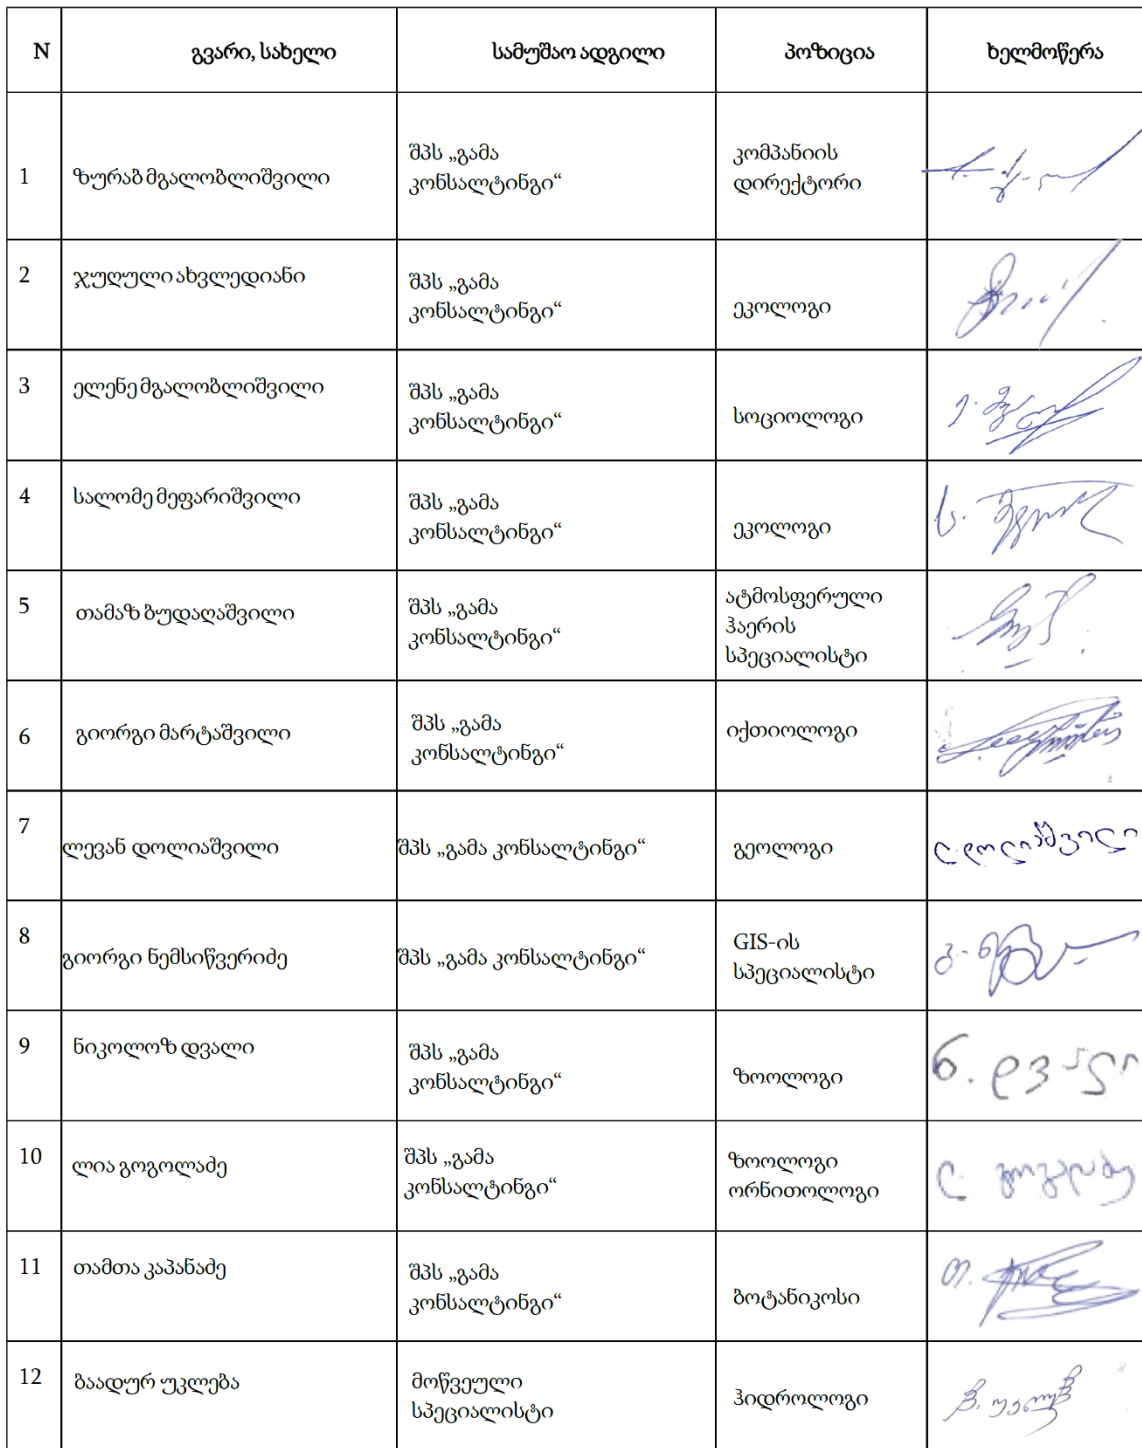 N გვარი, სახელი სამუშაო ადგილი პოზიცია ხელმოწერა
1 ზურაბ მგალობლიშვილი შპს „გამა კონსალტინგი“ კომპანიის დირექტორი
2 ჯუღული ახვლედიანი შპს „გამა კონსალტინგი“ ეკოლოგი
3 ელენე მგალობლიშვილი შპს „გამა კონსალტინგი“ სოციოლოგი
4 სალომე მეფარიშვილი შპს „გამა კონსალტინგი“ ეკოლოგი
5 თამაზ ბუდაღაშვილი შპს „გამა კონსალტინგი“ ატმოსფერული ჰაერის სპეციალისტი
6 გიორგი მარტაშვილი შპს „გამა კონსალტინგი“ იქთიოლოგი
7 ლევან დოლიაშვილი შპს „გამა კონსალტინგი“ გეოლოგი ლ. დოლიაშვილი
8 გიორგი ნემსიწვერიძე შპს „გამა კონსალტინგი“ GIS-ის სპეციალისტი
9 ნიკოლოზ დვალი შპს „გამა კონსალტინგი“ ზოოლოგი ნ. დვალი
10 ლია გოგოლაძე შპს „გამა კონსალტინგი“ ზოოლოგი ორნითოლოგი
11 თამთა კაპანაძე შპს „გამა კონსალტინგი“ ბოტანიკოსი
12 ბაადურ უკლება მოწვეული სპეციალისტი ჰიდროლოგი